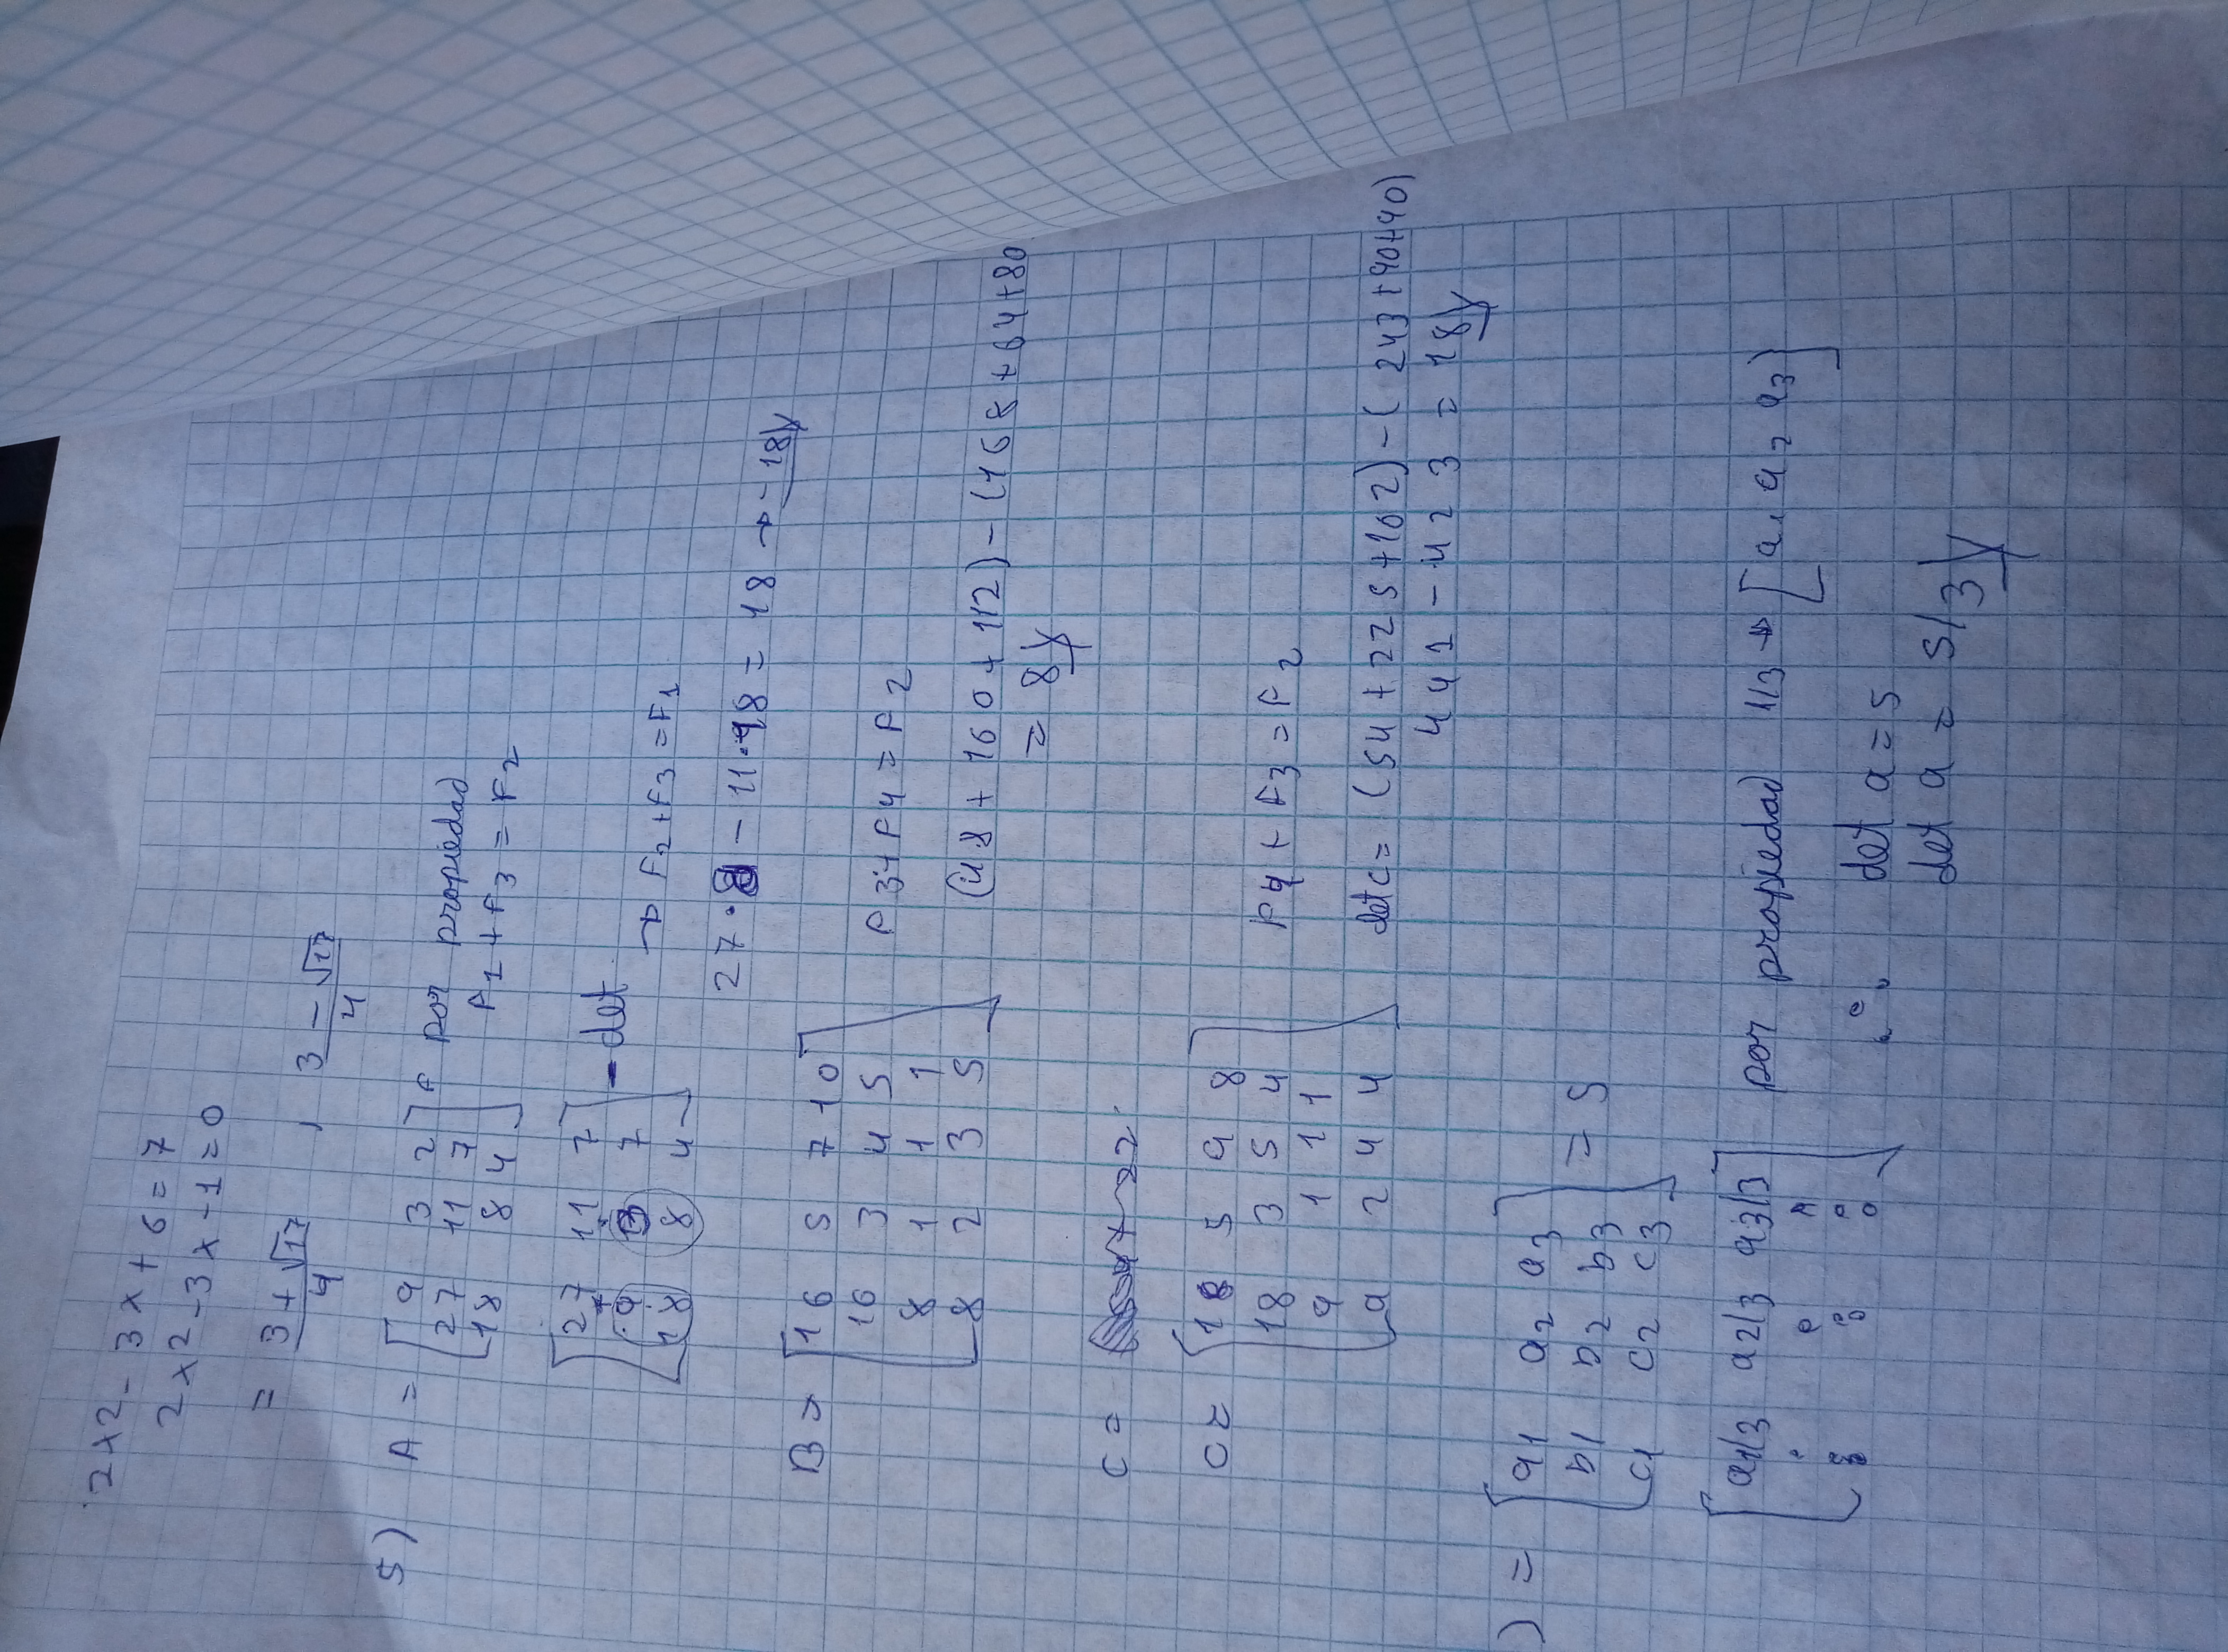 2x2 - 3x + 6 = 7
2x2 - 3x - 1 = 0
= 3 + √17 / 4 , 3 - √17 / 4
5) A = [ 9 3 2
27 11 7
18 8 4 ] por propiedad
F1 + F3 = F2
[ 27 11 7
9 3 7
18 8 4 ] - det
→ F2 + F3 = F1
27 · 8 - 11 · 18 = 18 → -18
B = [ 16 5 7 10
16 3 4 5
8 1 1 1
8 2 3 5 ]
F3 + F4 = F2
(48 + 160 + 112) - (168 + 64 + 80
= 8
C =
C = [ 18 5 9 8
18 3 5 4
9 1 1 1
9 2 4 4 ]
F4 + F3 = F2
det C = (54 + 225 + 162) - (243 + 90 + 90)
441 - 423 = 18
) = [ a1 a2 a3
b1 b2 b3
c1 c2 c3 ] = 5
[ a1/3 a2/3 a3/3 ] por propiedad 1/3 → [a1 a2 a3]
det a = 5
det a = 5/3